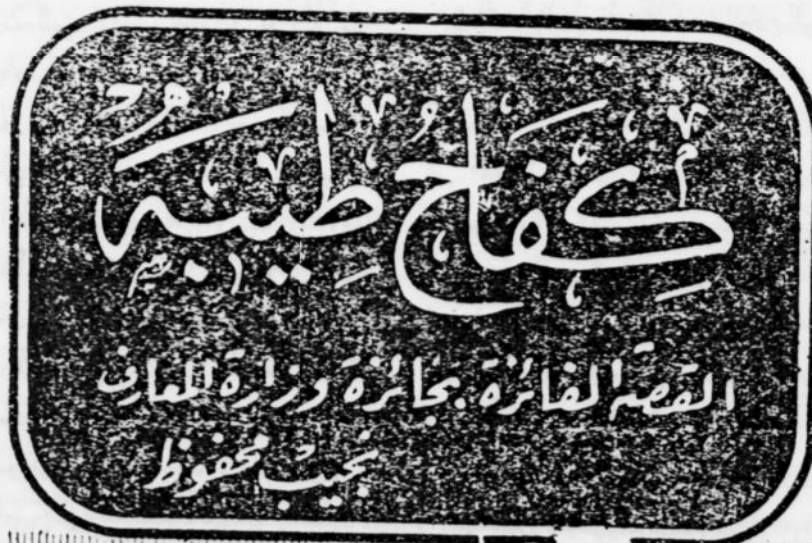 كِفَاحُ طِيبَة
القصة الفائزة بجائزة وزارة المعارف
نجيب محفوظ